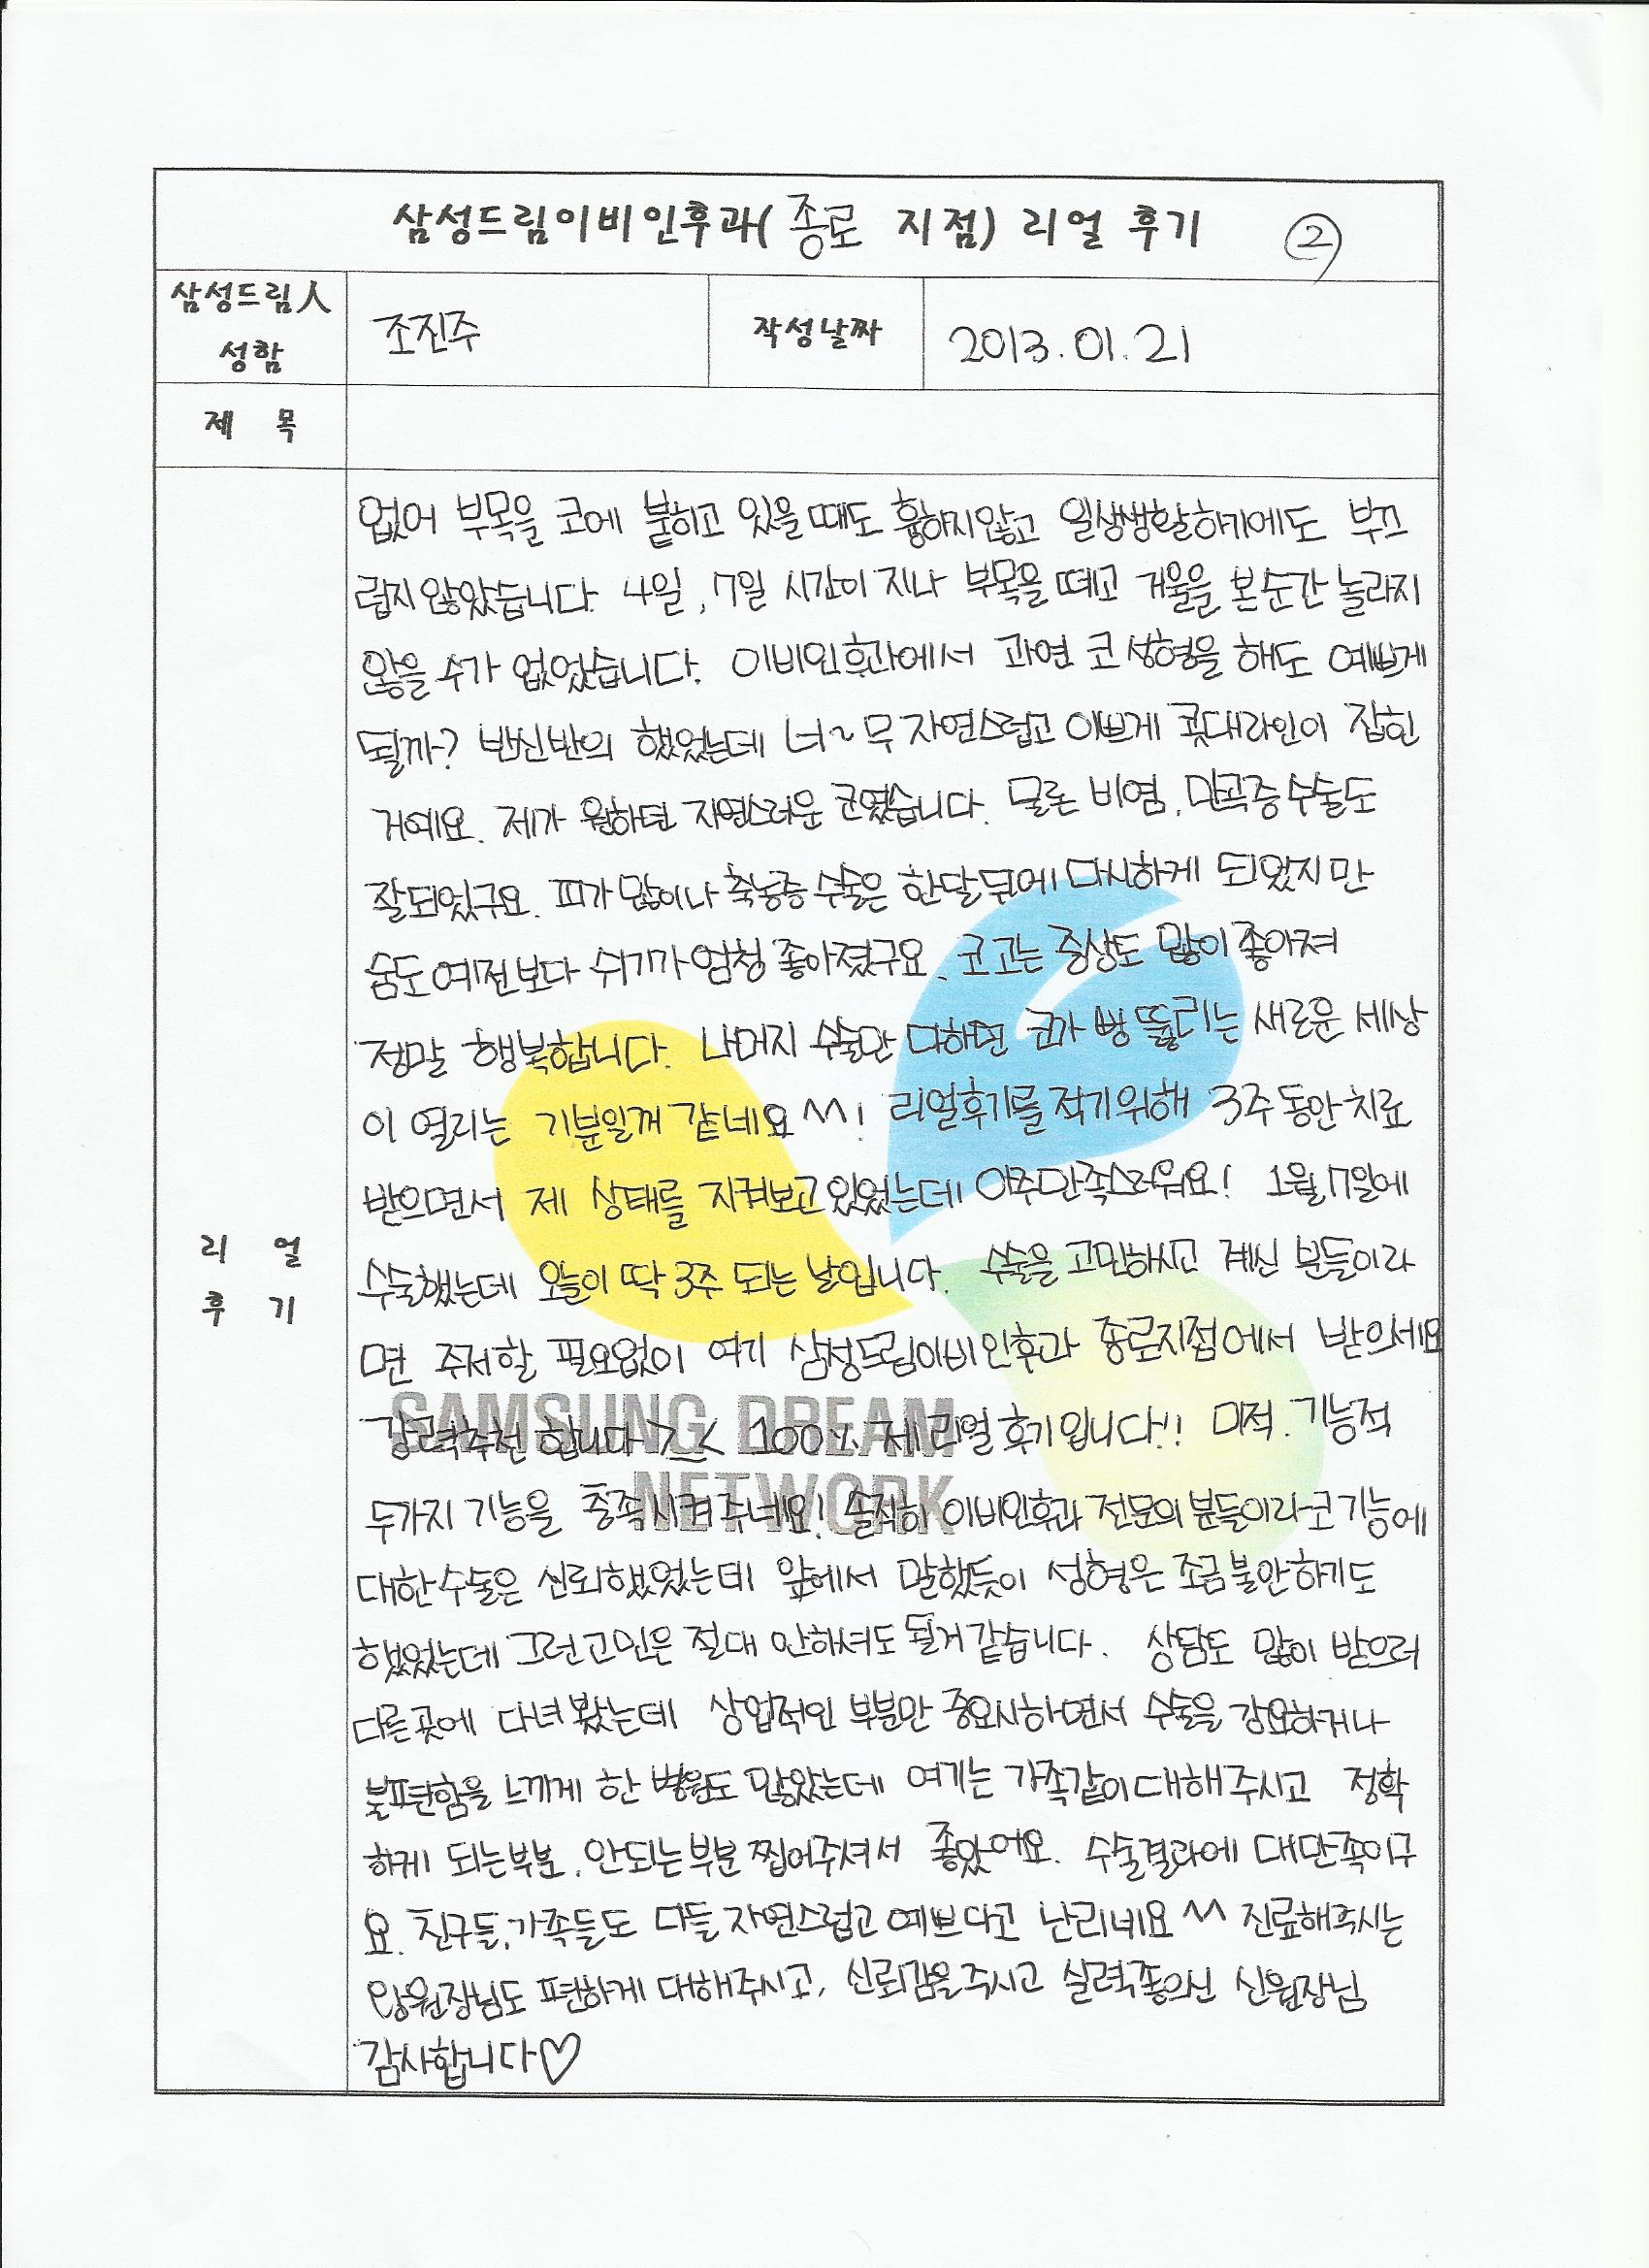 삼성드림이비인후과( 종로 지점) 리얼 후기 ②
삼성드림人 성함
조진주
작성날짜
2013.01.21
제 목
리 얼 후 기
없어 부목을 코에 붙히고 있을 때도 흉하지않고 일상생활하기에도 부끄
럽지않았습니다. 4일, 7일 시간이 지나 부목을 떼고 거울을 본순간 놀라지
않을 수가 없었습니다. 이비인후과에서 과연 코 성형을 해도 예쁘게
될까? 반신반의 했었는데 너~무 자연스럽고 이쁘게 콧대라인이 잡힌
거예요. 제가 원하던 자연스러운 코였습니다. 물론 비염, 만곡증수술도
잘되었구요. 피가 많이나 축농증 수술은 한달뒤에 다시하게 되었지만
숨도 예전보다 쉬기가 엄청 좋아졌구요. 코고는 증상도 많이 좋아져
정말 행복합니다. 나머지 수술만 다하면 코가 뻥 뚫리는 새로운 세상
이 열리는 기분일꺼 같네요^^! 리얼후기를 적기위해 3주동안치료
받으면서 제 상태를 지켜보고있었는데 아주만족스러워요! 1월 7일에
수술했는데 오늘이 딱 3주 되는 날입니다. 수술을 고민하시고 계신 분들이라
면 주저할 필요없이 여기 삼성드림이비인후과 종로지점에서 받으세요
강력추천 합니다 >_< 100% 제 리얼 후기입니다!! 미적. 기능적
SAMSUNG DREAM
NETWORK
두가지 기능을 충족시켜주네요! 솔직히 이비인후과 전문의 분들이라 코 기능에
대한수술은 신뢰했었는데 앞에서 말했듯이 성형은 조금불안하기도
했었는데 그런고민은 절대 안하셔도 될거같습니다. 상담도 많이 받으러
다른곳에 다녀봤는데 상업적인 부분만 중요시하면서 수술을 강요하거나
불편함을 느끼게 한 병원도 많았는데 여기는 가족같이대해주시고 정확
하게 되는부분, 안되는부분 찝어주셔서 좋았어요. 수술결과에 대만족이구
요. 친구들,가족들도 다들 자연스럽고 예쁘다고 난리네요^^ 진료해주시는
양원장님도 편하게 대해주시고, 신뢰감을주시고 실력좋으신 신원장님
감사합니다♡